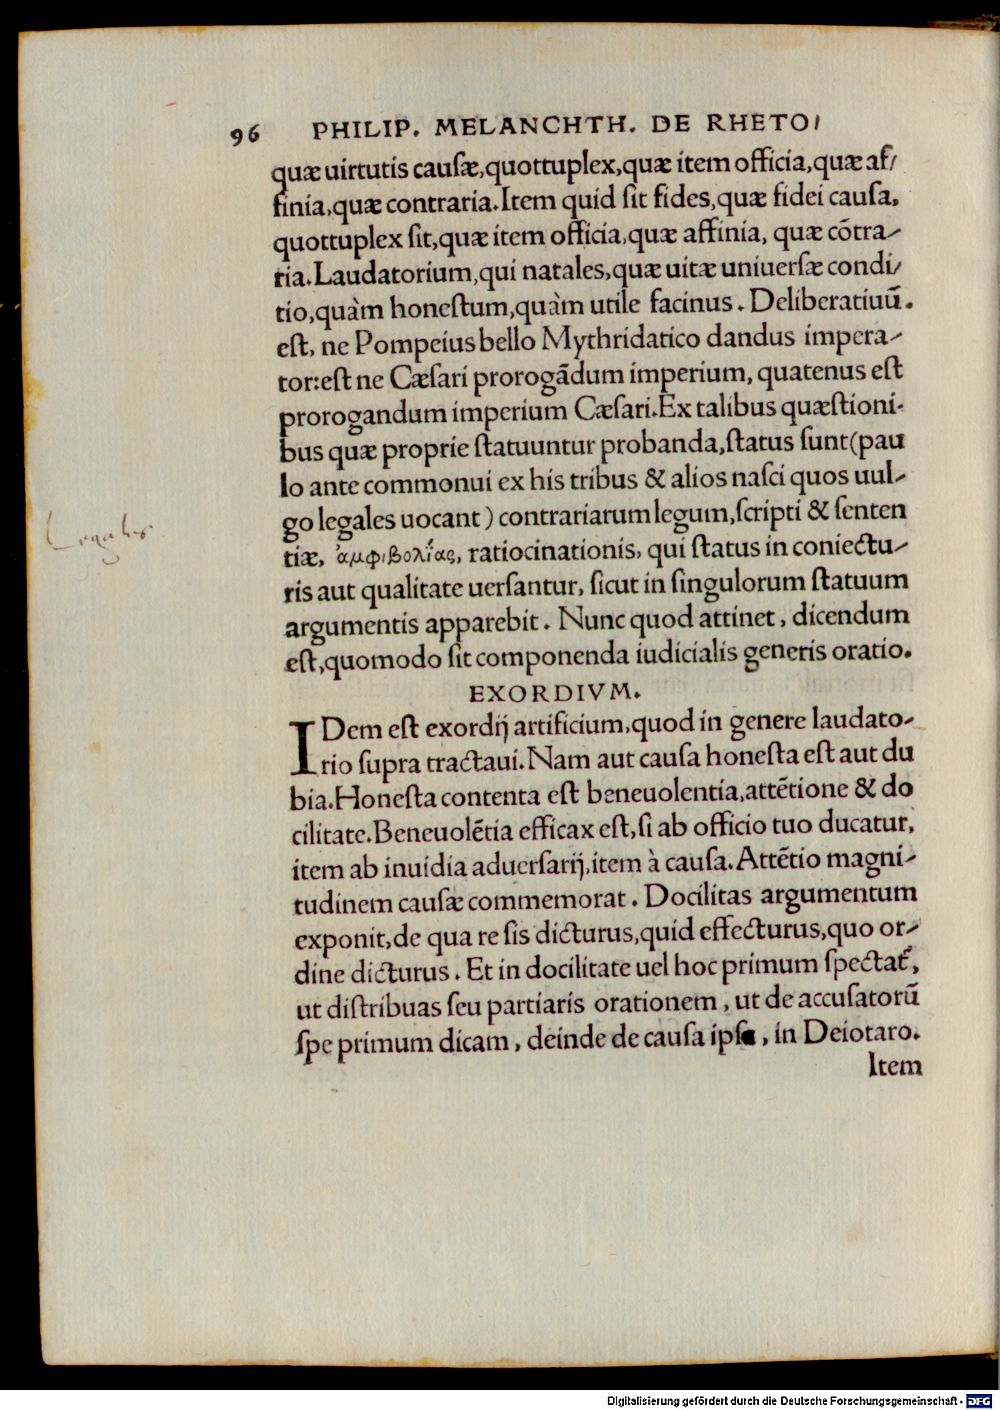 96 PHILIP. MELANCHTH. DE RHETO/
quæ uirtutis cauſæ,quottuplex,quæ item officia,quæ af/
finia,quæ contraria.Item quid ſit fides,quæ fidei cauſa,
quottuplex ſit,quæ item officia,quæ affinia, quæ cõtra/
ria.Laudatorium,qui natales,quæ uitæ uniuerſæ condi/
tio,quàm honeſtum,quàm utile facinus. Deliberatiuũ.
eſt, ne Pompeius bello Mythridatico dandus impera/
tor:eſt ne Cæſari prorogãdum imperium, quatenus eſt
prorogandum imperium Cæſari.Ex talibus quæſtioni-
bus quæ proprie ſtatuuntur probanda,ſtatus ſunt(pau
lo ante commonui ex his tribus & alios naſci quos uul/
go legales uocant) contrariarum legum,ſcripti & ſenten
tiæ, ἀμφιβολίας, ratiocinationis, qui ſtatus in coniectu/
ris aut qualitate uerſantur, ſicut in ſingulorum ſtatuum
argumentis apparebit. Nunc quod attinet, dicendum
eſt,quomodo ſit componenda iudicialis generis oratio.
Legales
EXORDIVM.
IDem eſt exordij artificium,quod in genere laudato/
rio ſupra tractaui.Nam aut cauſa honeſta eſt aut du
bia.Honeſta contenta eſt beneuolentia,attẽtione & do
cilitate.Beneuolẽtia efficax eſt,ſi ab officio tuo ducatur,
item ab inuidia aduerſarij,item à cauſa.Attẽtio magni/
tudinem cauſæ commemorat. Docilitas argumentum
exponit,de qua re ſis dicturus,quid effecturus,quo or/
dine dicturus. Et in docilitate uel hoc primum ſpectat᷑,
ut diſtribuas ſeu partiaris orationem, ut de accuſatorũ
ſpe primum dicam, deinde de cauſa ipſa, in Deiotaro.
Item
Digitalisierung gefördert durch die Deutsche Forschungsgemeinschaft - DFG